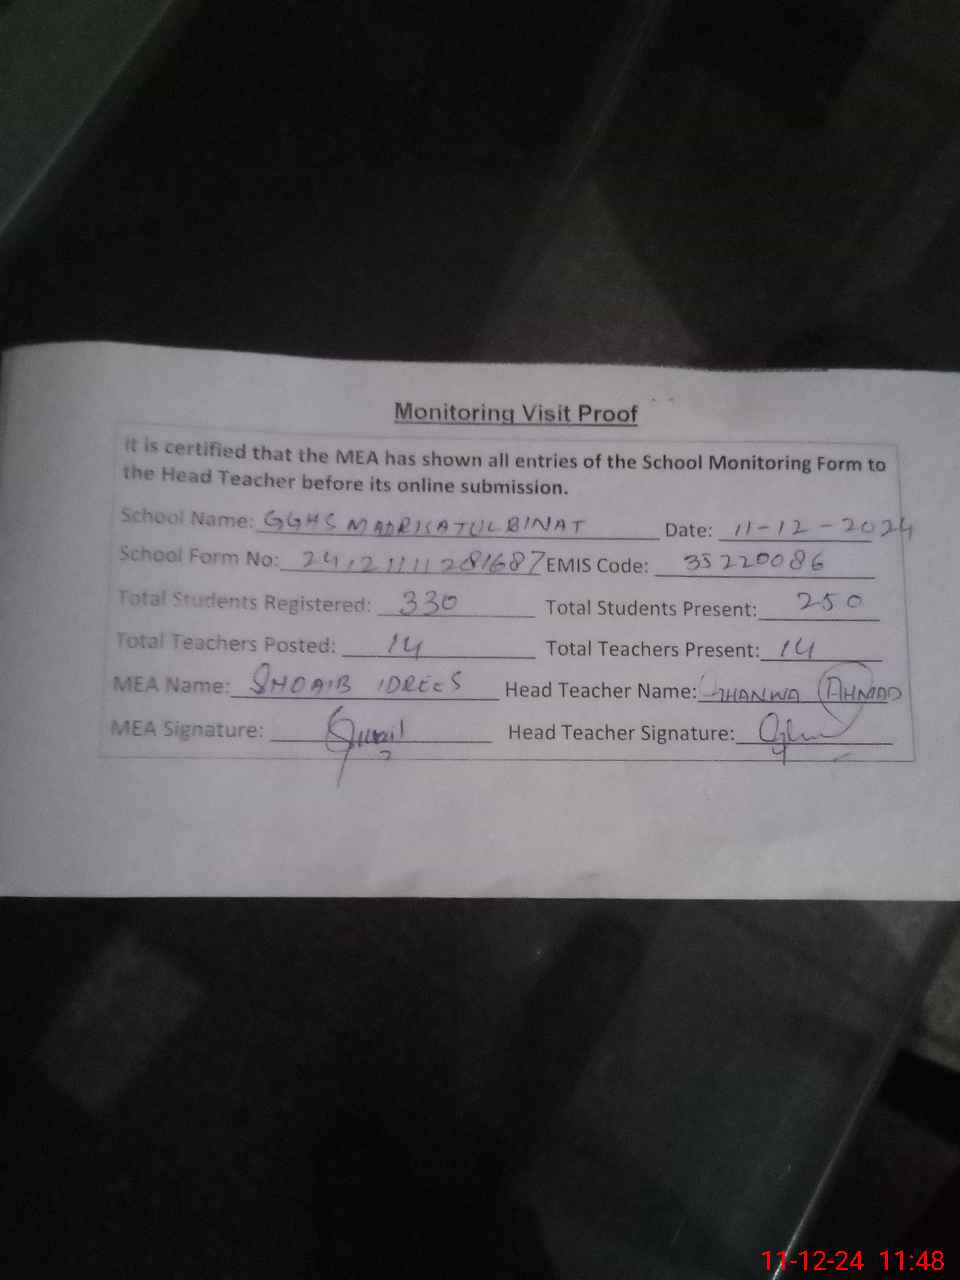 Monitoring Visit Proof
It is certified that the MEA has shown all entries of the School Monitoring Form to
the Head Teacher before its online submission.
School Name: GGHS MADRISATULBINAT Date: 11-12-2024
School Form No: EMIS Code: 35220086
Total Students Registered: 330 Total Students Present: 250
Total Teachers Posted: 14 Total Teachers Present: 14
MEA Name: SHOAIB IDREES Head Teacher Name: AHMAD
MEA Signature: Head Teacher Signature:
11-12-24 11:48